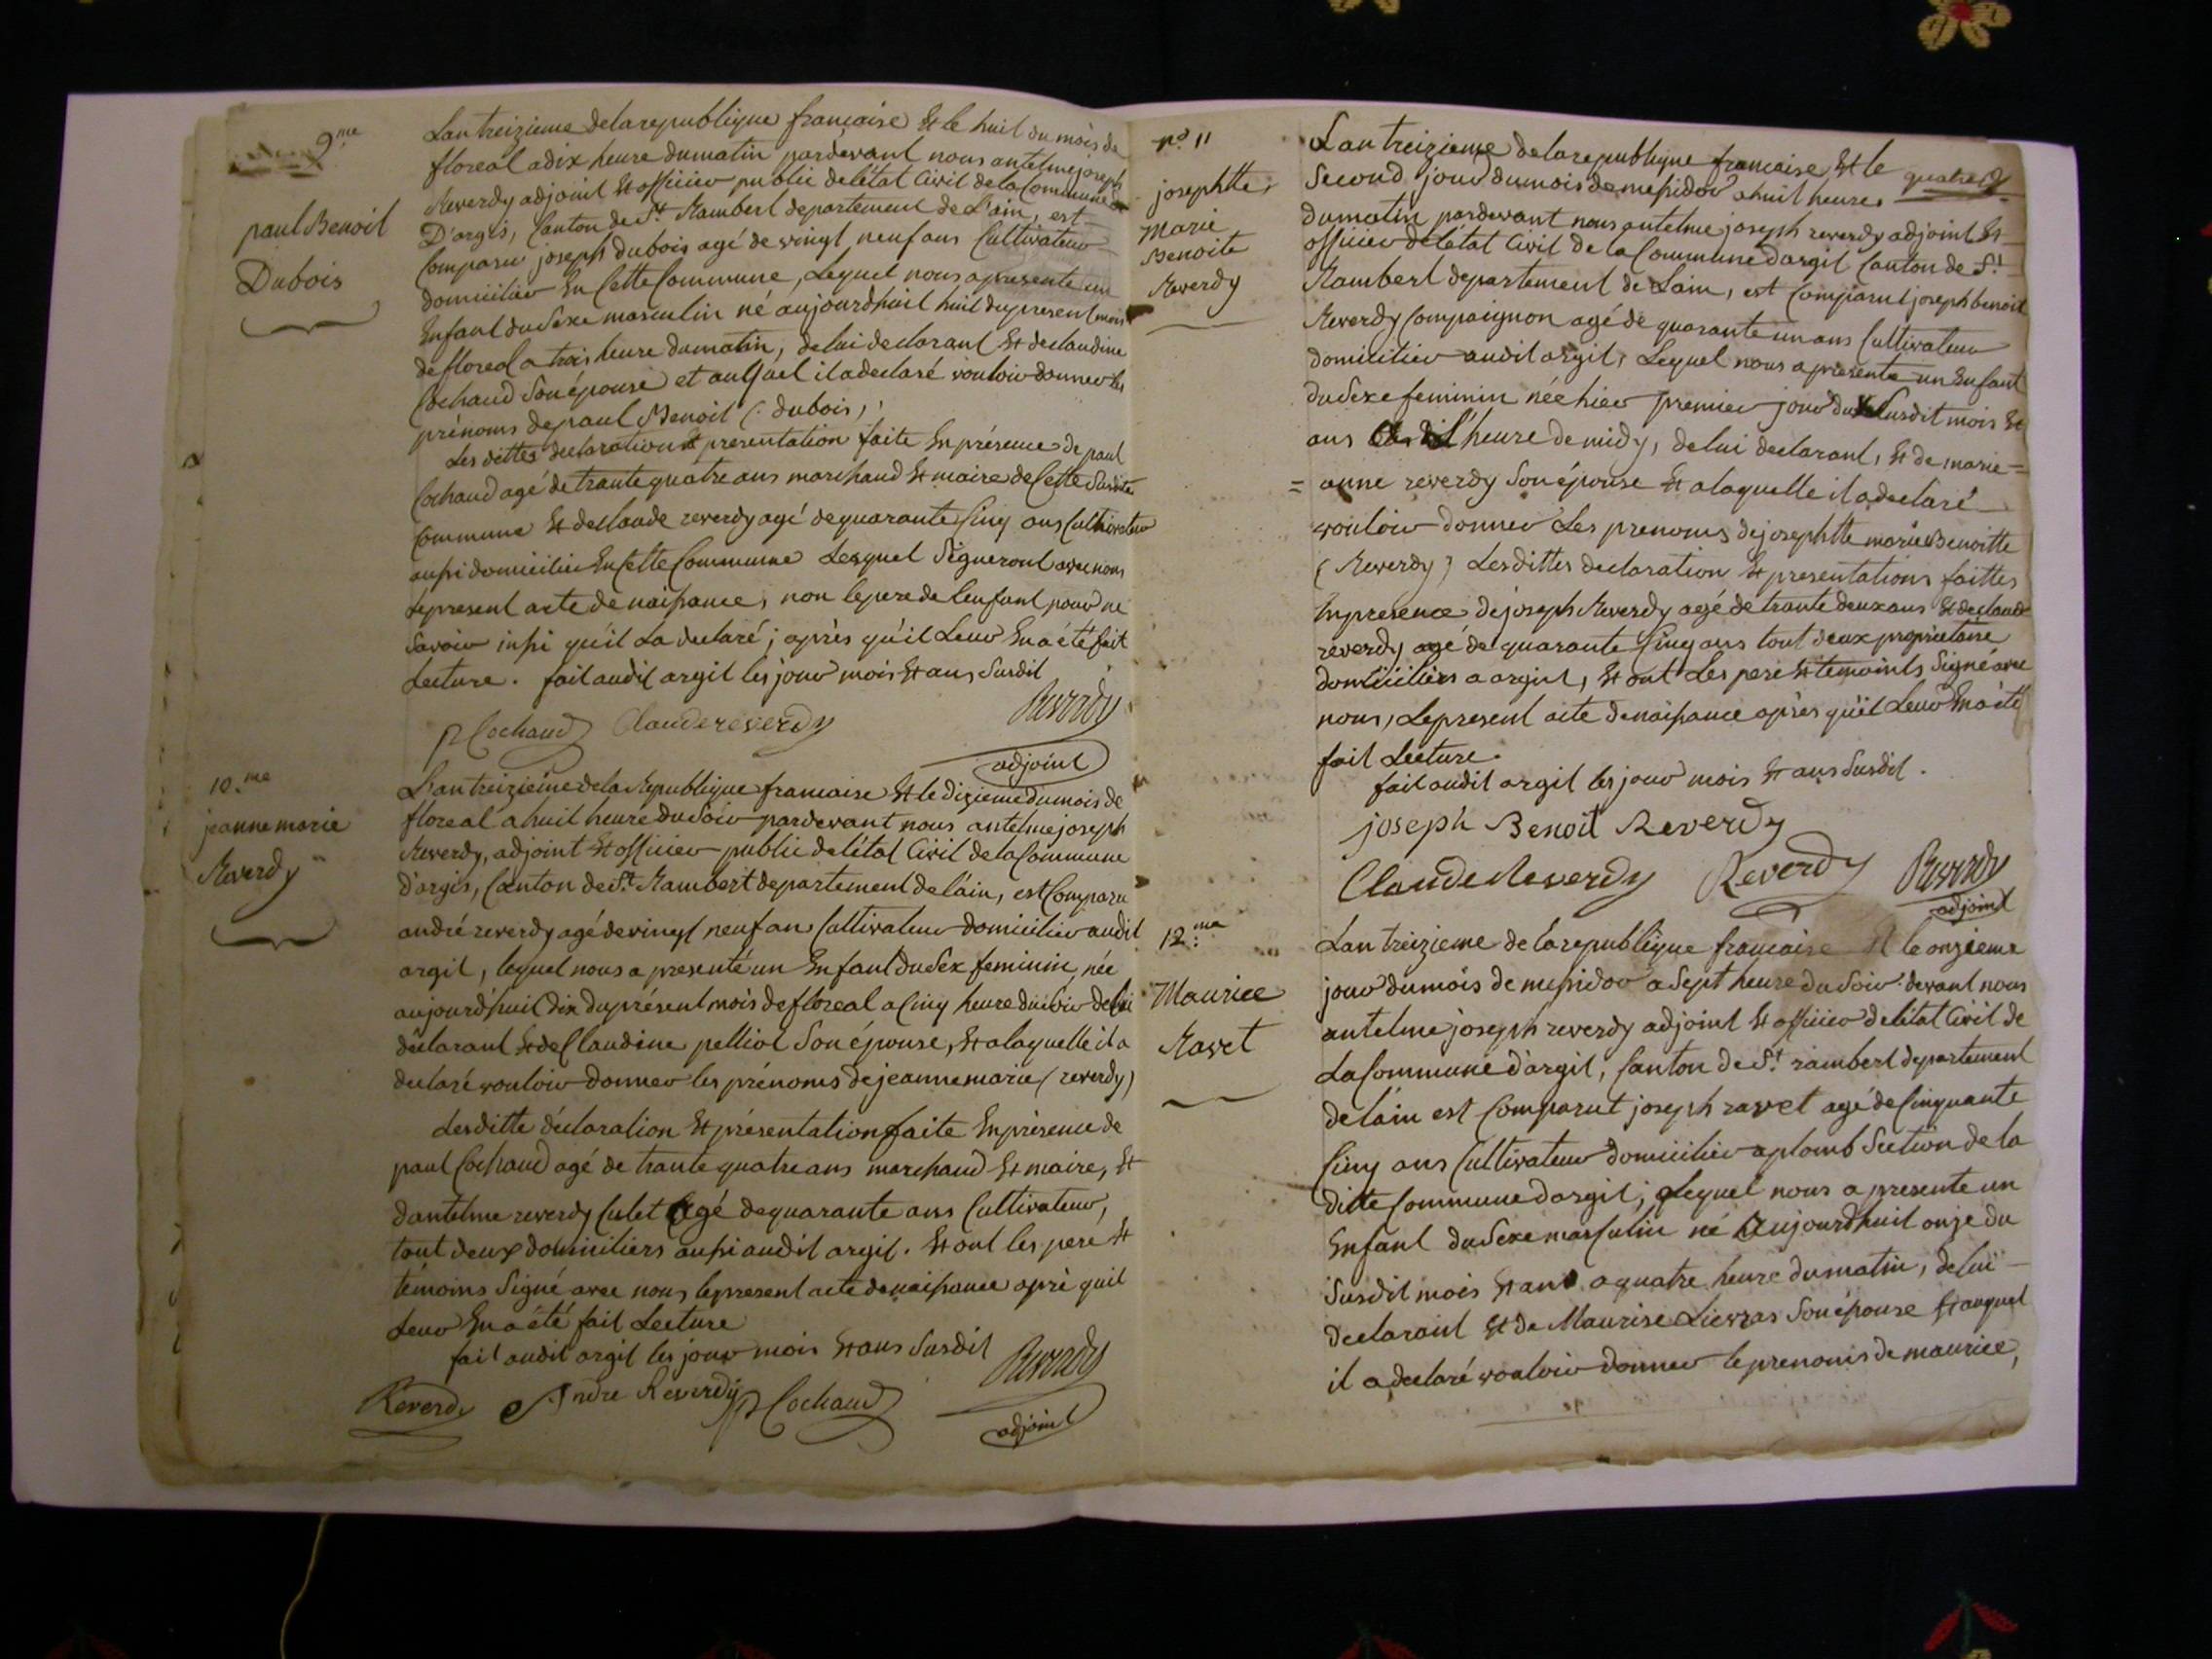 9.me
paul Benoit
Dubois
Lan treizieme delarepublique francaise Et le huit du mois de
floreal adix heure dumatin pardevant nous antelme joseph
Reverdy adjoint Et officier public deletat Civil delaCommune
D'argis, Canton de St. Rambert departement de L'ain, est
Comparu joseph dubois agé devingt neuf ans Cultivateur
domicilier En Cette Commune, Lequel nous apresente un
Enfant du Sexe masculin né aujourdhuit huit dupresent mois
defloreal a trois heure dumatin, delui declarant Et declaudine
Cochaud Son épouse et auquel il adeclaré vouloir donner les
prénoms depaul Benoit (dubois,
Les dittes declaration Et presentation faite En présence de paul
Cochaud agé detrante quatre ans marchand Et maire deCette Susdite
Commune Et declaude reverdy agé dequarante Cinq ans Cultivateur
aussi domicilier En Cette Commune Lesquel Signeront avec nous
Lepresent acte de naissance, non lepere delenfant pour ne
Savoir insi qu'il La declaré; après qu'il Leur En a été fait
Lecture. fait audit argit les jour mois Et ans Susdit
P Cochaud Claude reverdy Reverdy
adjoint
10.me
jeanne marie
Reverdy
L'an treizieme dela Republique francaise Et le dizieme dumois de
floreal a huit heure du Soir pardevant nous antelme joseph
Reverdy, adjoint Et officier public deletat Civil delaCommune
d'argis, Canton de St. Rambert departement delain, est Comparu
andré reverdy agé devingt neuf an Cultivateur domicilier audit
argit, lequel nous a presenté un Enfant du Sex feminin, née
aujourdhuit dix duprésent mois defloreal a Cinq heure du Soir delui
déclarant Et deClaudine pelliot Son épouse, Et alaquelle il a
declaré vouloir donner les prénoms dejeanne marie (reverdy)
Lesditte déclaration Et présentation faite En présence de
paul Cochaud agé de trante quatre ans marchand Et maire, Et
dantelme reverdy Culet agé dequarante ans Cultivateur,
tout deux domiciliers aussi audit argit. Et ont les pere Et
témoins Signé avec nous lepresent acte denaissance apré quil
Leur En a été fait Lecture
fait audit argit les jour mois Et ans Susdit
Reverdy Andre Reverdy P Cochaud Reverdy
adjoint
no. 11
josephtte
Marie
Benoite
Reverdy
Lan treizieme delarepublique francaise Et le quatre
Second jour dumois demessidor a huit heures
dumatin pardevant nous antelme joseph reverdy adjoint Et
officier deletat Civil de la Commune dargit Canton de St.
Rambert departement de Lain, est Comparut joseph benoit
Reverdy Compaignon agé de quarante un ans Cultivateur
domicilier audit argit, Lequel nous apresente un Enfant
du Sexe feminin née hier premier jour du Susdit mois Et
ans a l'heure de midy, delui declarant, Et de marie=
= anne reverdy Son épouse Et alaquelle il adeclaré
vouloir donner Les prenoms dejosephtte marie Benoitte
(Reverdy) Lesdittes declaration Et presentations faittes
En presence dejoseph Reverdy agé de trante deux ans Et declaude
reverdy agé dequarante Cinq ans tout deux proprietaire
domiciliers a argit, Et ont Les pere Et temoints Signé avec
nous, Lepresent acte denaissance après quil Leur En a été
fait Lecture.
fait audit argit les jour mois Et ans Susdit.
joseph Benoit Reverdy
Claude Reverdy Reverdy Reverdy
adjoint
12.me
Maurice
Ravet
Lan treizieme de larepublique francaise Et le onzieme
jour dumois de messidor a Sept heure du Soir devant nous
antelme joseph reverdy adjoint Et officier deletat Civil de
LaCommune d'argit, Canton de St. rambert departement
delain est Comparut joseph ravet agé de Cinquante
Cinq ans Cultivateur domicilier aplomb Section de la
ditte Commune dargit; Lequel nous a presente un
Enfant du Sexe masculin né aujourdhuit onze du
Susdit mois Et ans a quatre heure dumatin, delui
declarant Et de Maurise Lievras Son épouse Et auquel
il adeclaré vouloir donner leprenoms de maurice,